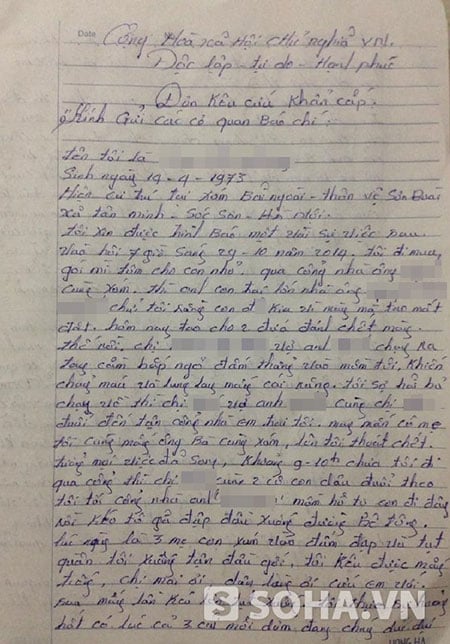 Date
Cộng Hoà xã Hội chủ nghĩa VN.
Độc lập - tự do - Hạnh phúc
Đơn Kêu cứu Khẩn cấp.
Kính Gửi các cơ quan Báo chí:
Tên tôi là
Sinh ngày 14-4-1973
Hiện cư trú tại xóm Bãi ngoài - thôn vệ Sơn Đoài
xã tân minh - Sóc Sơn - Hà Nội.
tôi xin được trình Báo một vài sự việc sau.
vào hồi 7 giờ sáng 29-10 năm 2014. tôi đi mua
gói mì tôm cho con nhỏ. qua cổng nhà ông
cùng xóm. thì anh con trai lớn nhà ông
chửi tôi rằng con
đất. hôm nay tao cho 2 đứa đánh chết mày.
thế rồi. chị vợ anh chạy ra
tay cầm đấm thẳng vào mồm tôi, Khiến
chảy máu và lung lay mấy cái răng. tôi sợ hãi bỏ
chạy về thì chị vợ anh cùng chị
đuổi đến tận cổng nhà em trai tôi. may mắn có mẹ
tôi cùng mấy ông Bà cùng xóm, lên tôi thoát chết.
tưởng mọi việc đã song, Khoảng 9-10h trưa tôi đi
qua cổng thì chị cùng 2 cô con dâu đuổi theo
tôi tới cổng nhà anh mồm hô tụi con đi đây
rồi Kéo tô quả đập đầu xuống đường Bê tông.
lúc này là 3 mẹ con xúm vào đấm đạp và tụt
quần tôi xuống tận đầu gối. tôi Kêu được mấy
tiếng, chị mai ơi, làng ơi cứu em với.
sau mấy lần
hột có lúc cả 3 mới dùng
SOHA.VN